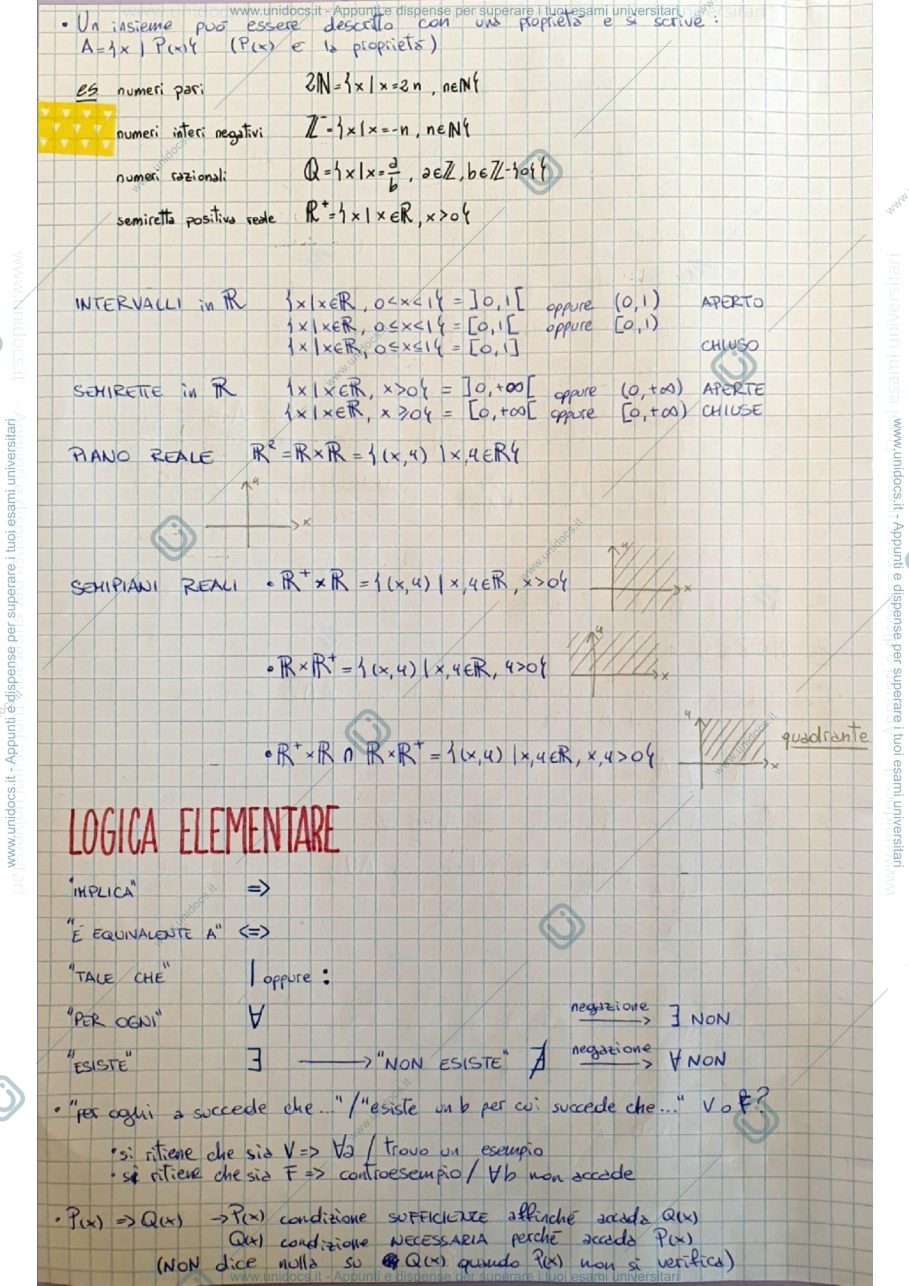 www.unidocs.it - Appunti e dispense per superare i tuoi esami universitari
• Un insieme può essere descritto con una proprietà e si scrive :
A={x | P(x)} (P(x) è la proprietà)
es numeri pari 2ℕ={x | x=2n , n∈ℕ}
numeri interi negativi ℤ⁻={x | x=-n , n∈ℕ}
numeri razionali ℚ={x | x=a/b , a∈ℤ, b∈ℤ-{0}}
semiretta positiva reale ℝ⁺={x | x∈ℝ, x>0}
INTERVALLI in ℝ {x|x∈ℝ, 0<x<1} = ]0,1[ oppure (0,1) APERTO
{x|x∈ℝ, 0≤x<1} = [0,1[ oppure [0,1)
{x|x∈ℝ, 0≤x≤1} = [0,1] CHIUSO
SEMIRETTE in ℝ {x|x∈ℝ, x>0} = ]0,+∞[ oppure (0,+∞) APERTE
{x|x∈ℝ, x≥0} = [0,+∞[ oppure [0,+∞) CHIUSE
PIANO REALE ℝ²=ℝ×ℝ={(x,y) | x,y∈ℝ}
y
x
SEMIPIANI REALI • ℝ⁺×ℝ = {(x,y) | x,y∈ℝ, x>0}
y
x
• ℝ×ℝ⁺ = {(x,y) | x,y∈ℝ, y>0}
y
x
• ℝ⁺×ℝ ∩ ℝ×ℝ⁺ = {(x,y) | x,y∈ℝ, x,y>0}
y
x
quadrante
LOGICA ELEMENTARE
"IMPLICA" =>
"È EQUIVALENTE A" <=>
"TALE CHE" | oppure :
"PER OGNI" ∀ negazione → ∃ NON
"ESISTE" ∃ → "NON ESISTE" ∄ negazione → ∀ NON
• "per ogni a succede che..." / "esiste un b per cui succede che..." V o F?
• si ritiene che sia V => ∀a / trovo un esempio
• si ritiene che sia F => controesempio / ∀b non accade
• P(x) => Q(x) → P(x) condizione SUFFICIENTE affinché accada Q(x)
Q(x) condizione NECESSARIA perché accada P(x)
(NON dice nulla su Q(x) quando P(x) non si verifica)
www.unidocs.it - Appunti e dispense per superare i tuoi esami universitari
www.unidocs.it - Appunti e dispense per superare i tuoi esami universitari
www.unidocs.it - Appunti e dispense per superare i tuoi esami universitari